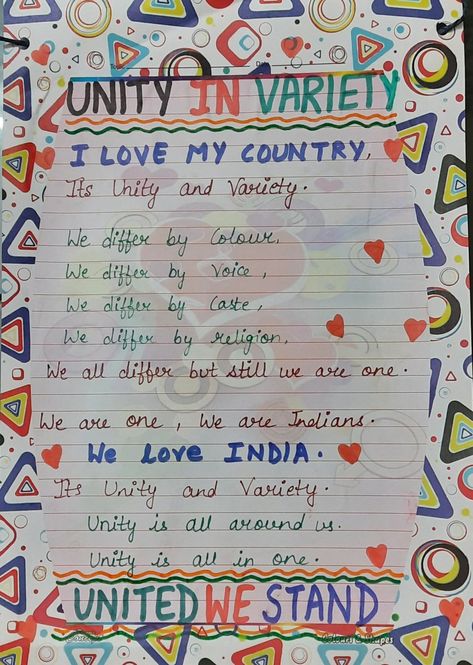 UNITY IN VARIETY
I LOVE MY COUNTRY,
Its Unity and Variety.
We differ by Colour,
We differ by Voice,
We differ by Caste,
We differ by religion,
We all differ but still we are one.
We are one, We are Indians.
We Love INDIA.
Its Unity and Variety.
Unity is all around us.
Unity is all in one.
UNITED WE STAND